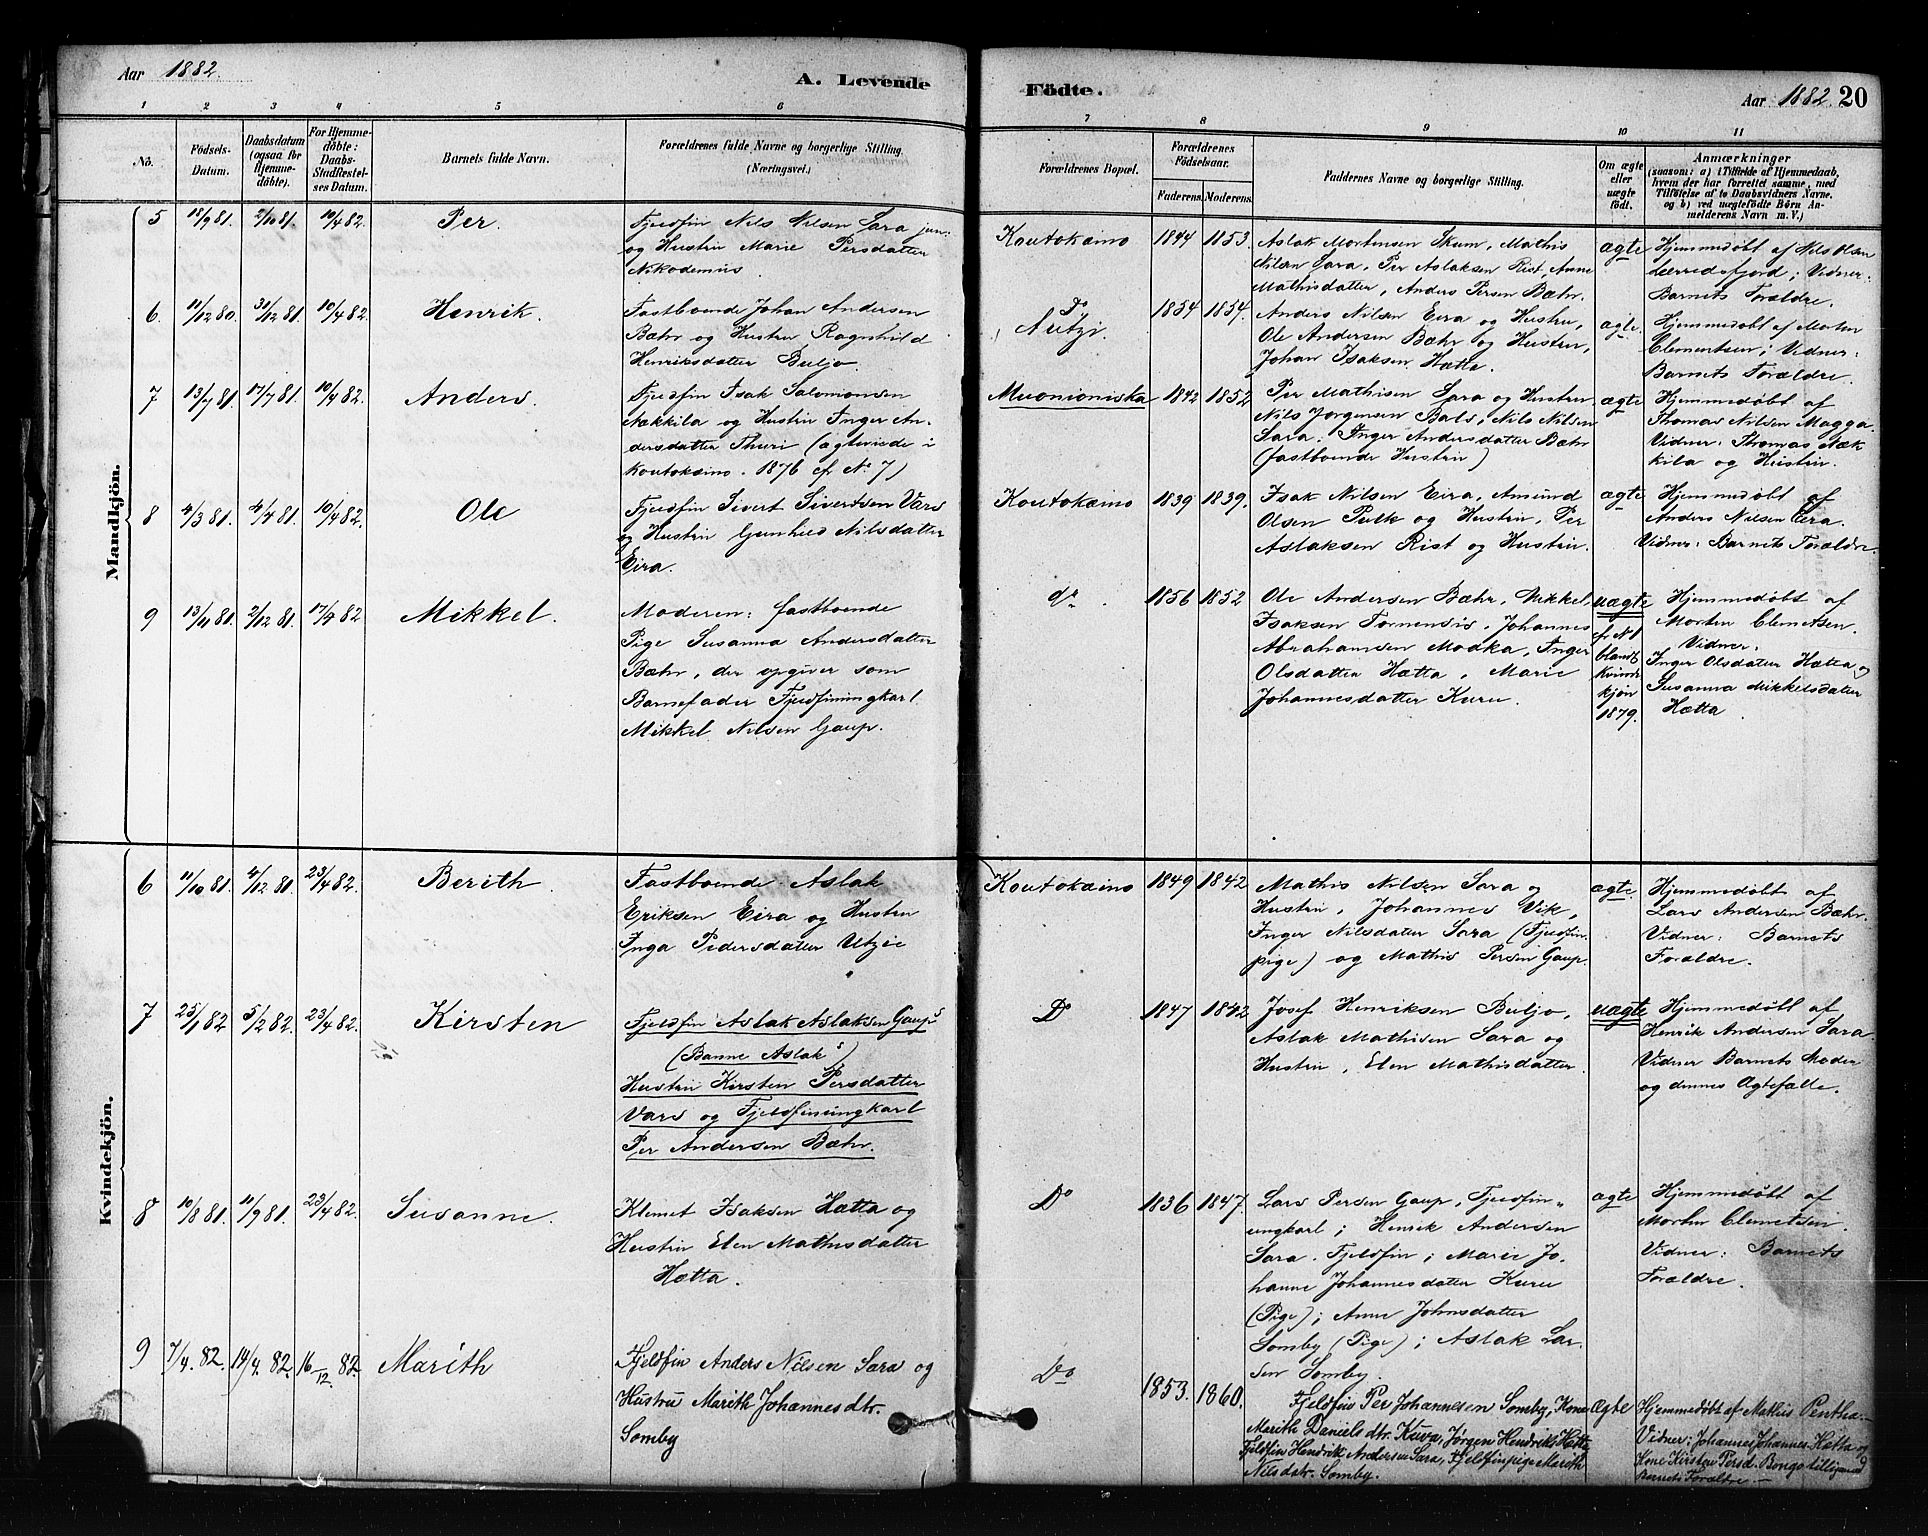 Aar 1882.
A. Levende
1 2 3 4 5 6
No.
Födsels-Datum.
Daabsdatum (ogsaa for Hjemme-döbte).
For Hjemme-döbte: Daabs-Stadfæstel-ses Datum.
Barnets fulde Navn.
Forældrenes fulde Navne og borgerlige Stilling.
(Næringsvei.)
Mandkjön.
5 18/9 81. 2/10 81. 10/4 82. Per.
Fjeldfin Nils Nilsen Sara jun:
og Hustru Marie Persdatter
Nikodemus.
6. 11/12 80. 31/12 81. 10/4 82. Henrik.
Fastboende Johan Andersen
Bæhr og Hustru Ragnhild
Henriksdatter Buljo.
7 13/7 81. 17/7 81. 10/4 82. Anders.
Fjeldfin Isak Salomonsen
Nækkila og Hustru Inger An-
dersdatter Thuri (ægteviede i
Koutokæino. 1876 cfr No 7)
8 4/3 81. 4/4 81. 10/4 82. Ole
Fjeldfin Sivert Sivertsen Vars
og Hustru Gunhild Nilsdatter
Eira.
9 13/11 81. 2/12 81. 17/4 82 Mikkel.
Moderen: fastboende
Pige Susanna Andersdatter
Bæhr, der opgiver som
Barnefader Fjeldfinungkarl
Mikkel Nilsen Gaup.
Kvindekjön.
6 11/10 81. 4/12 81. 23/4 82. Berith.
Fastboende Aslak
Eriksen Eira og Hustru
Inga Pedersdatter Utzie
7 25/1 82 5/2 82. 23/4 82. Kirsten
Fjeldfin Aslak Aslaksen Gaups
(Banne Aslak's)
Hustru Kirsten Persdatter
Vars og Fjeldfinungkarl
Per Andersen Bæhr.
8 10/8 81. 11/9 81. 23/4 82. Susanne.
Klemet Isaksen Hætta og
Hustru Elen Mathisdatter
Hætta.
9 7/4. 82. 14/4. 82. 16/12. 82. Marith
Fjeldfin Anders Nilsen Sara og
Hustru Marith Johannesdtr.
Somby
Födte.
Aar 1882. 20
7 8 9 10 11
Forældrenes Bopæl.
Forældrenes Födselsaar.
Faderens. Moderens.
Faddernes Navne og borgerlige Stilling.
Om ægte eller uægte födt.
Anmærkninger
(saasom: a) i Tilfælde af Hjemmedaab,
hvem der har forrettet samme, med
Tilföielse af to Daabsvidners Navne.
og b) ved uægtefödte Börn An-
melderens Navn m. V.)
Koutokæino 1844 1853.
Aslak Mortensen Skum, Mathis
Nilsen Sara, Per Aslaksen Rist, Anne
Mathisdatter, Anders Persen Bæhr.
ægte
Hjemmedøbt af Nils Olsen
Lærredsfjord; Vidner:
Barnets Forældre.
Do
Autzi. 1854 1854.
Anders Nilsen Eira og Hustru,
Ole Andersen Bæhr og Hustru,
Johan Isaksen Hætta.
ægte.
Hjemmedøbt af Morten
Clementsen; Vidner:
Barnets Forældre.
Muonioniska 1842 1852
Per Mathisen Sara og Hustru
Nils Jørgensen Bals, Nils Nilsen
Sara. Inger Andersdatter Bæhr
(fastboende Hustru)
ægte
Hjemmedøbt af
Thomas Nilsen Magga.
Vidner: Thomas Næk
kila og Hustru.
Koutokæino 1839 1839.
Isak Nilsen Eira, Amund
Olsen Pulk og Hustru, Per
Aslaksen Rist og Hustru.
ægte
Hjemmedøbt af
Anders Nilsen Eira.
Vidner: Barnets Forældre.
do. 1856 1852
Ole Andersen Bæhr, Mikkel
Isaksen Tornensis, Johannes
Abrahamsen Modka, Inger
Olsdatter Hætta, Marie
Johannesdatter Kurru.
uægte
cfr No 1
blandt
Kvinde
kjøn
1879.
Hjemmedøbt af
Morten Clemetsen.
Vidner:
Inger Olsdatter Hætta og
Susanna Mikkelsdatter
Hætta.
Koutokæino 1849 1842
Mathis Nilsen Sara og
Hustru, Johannes Vik,
Inger Nilsdatter Sara (Fjeldfin-
pige) og Mathis Persen Gaup.
ægte.
Hjemmedøbt af
Lars Andersen Bæhr.
Vidner: Barnets
Forældre.
Do 1847 1842
Josef Henriksen Buljo,
Aslak Mathisen Sara og
Hustru, Elen Mathisdatter.
uægte
Hjemmedøbt af
Henrik Andersen Sara.
Vidner Barnets Moder
og dennes Ægtefælle.
Do 1836 1847.
Lars Persen Gaup, Fjeldfin-
ungkarl; Henrik Andersen
Sara. Fjeldfin; Marie Jo-
hanne Johannesdatter Kurru
(Pige); Anne Johnsdatter
Somby (Pige); Aslak Lar-
sen Somby.
ægte
Hjemmedøbt af
Morten Clemetsen.
Vidner: Barnets
Forældre.
Do 1853. 1860.
Fjeldfin Per Johannesen Somby, Kone
Marith Daniels dtr. Kuva, Jørgen Hendriks Hætta
Fjeldfin Hendrik Andersen Sara, Fjeldfinpige Marith
Nilsdtr. Somby.
Ægte
Hjemmedøbt af Mathis Pentha-
Vidner: Johannes Johannes. Hætta og
Kone Kirsten Persd. Bongo tilligemed
Barnets Forældre.—